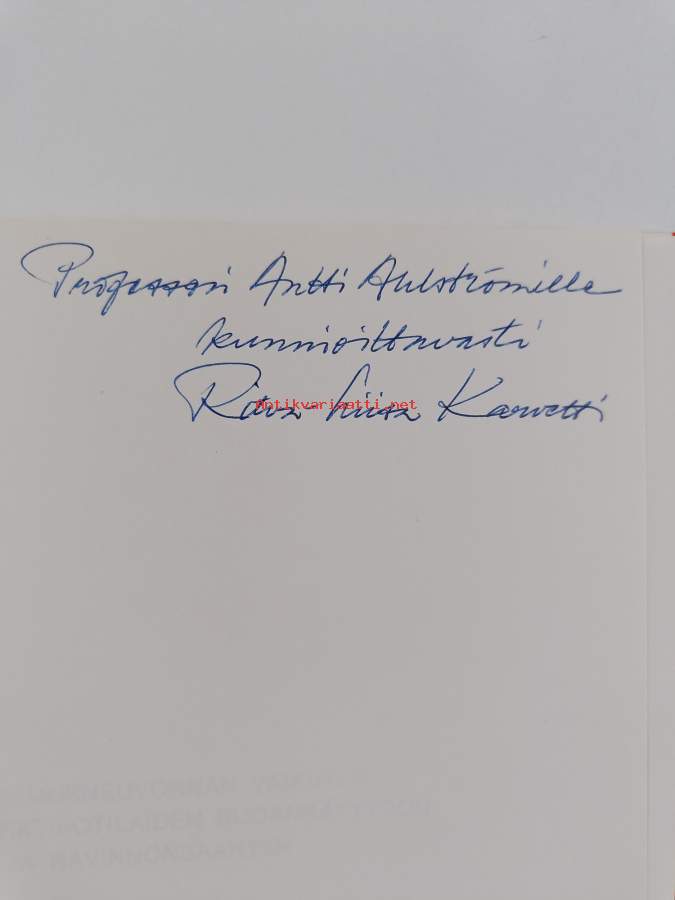 Professori Antti Ahlströmille
kunnioittavasti
Ritva-Liisa Karvetti
Antikvariaatti.net